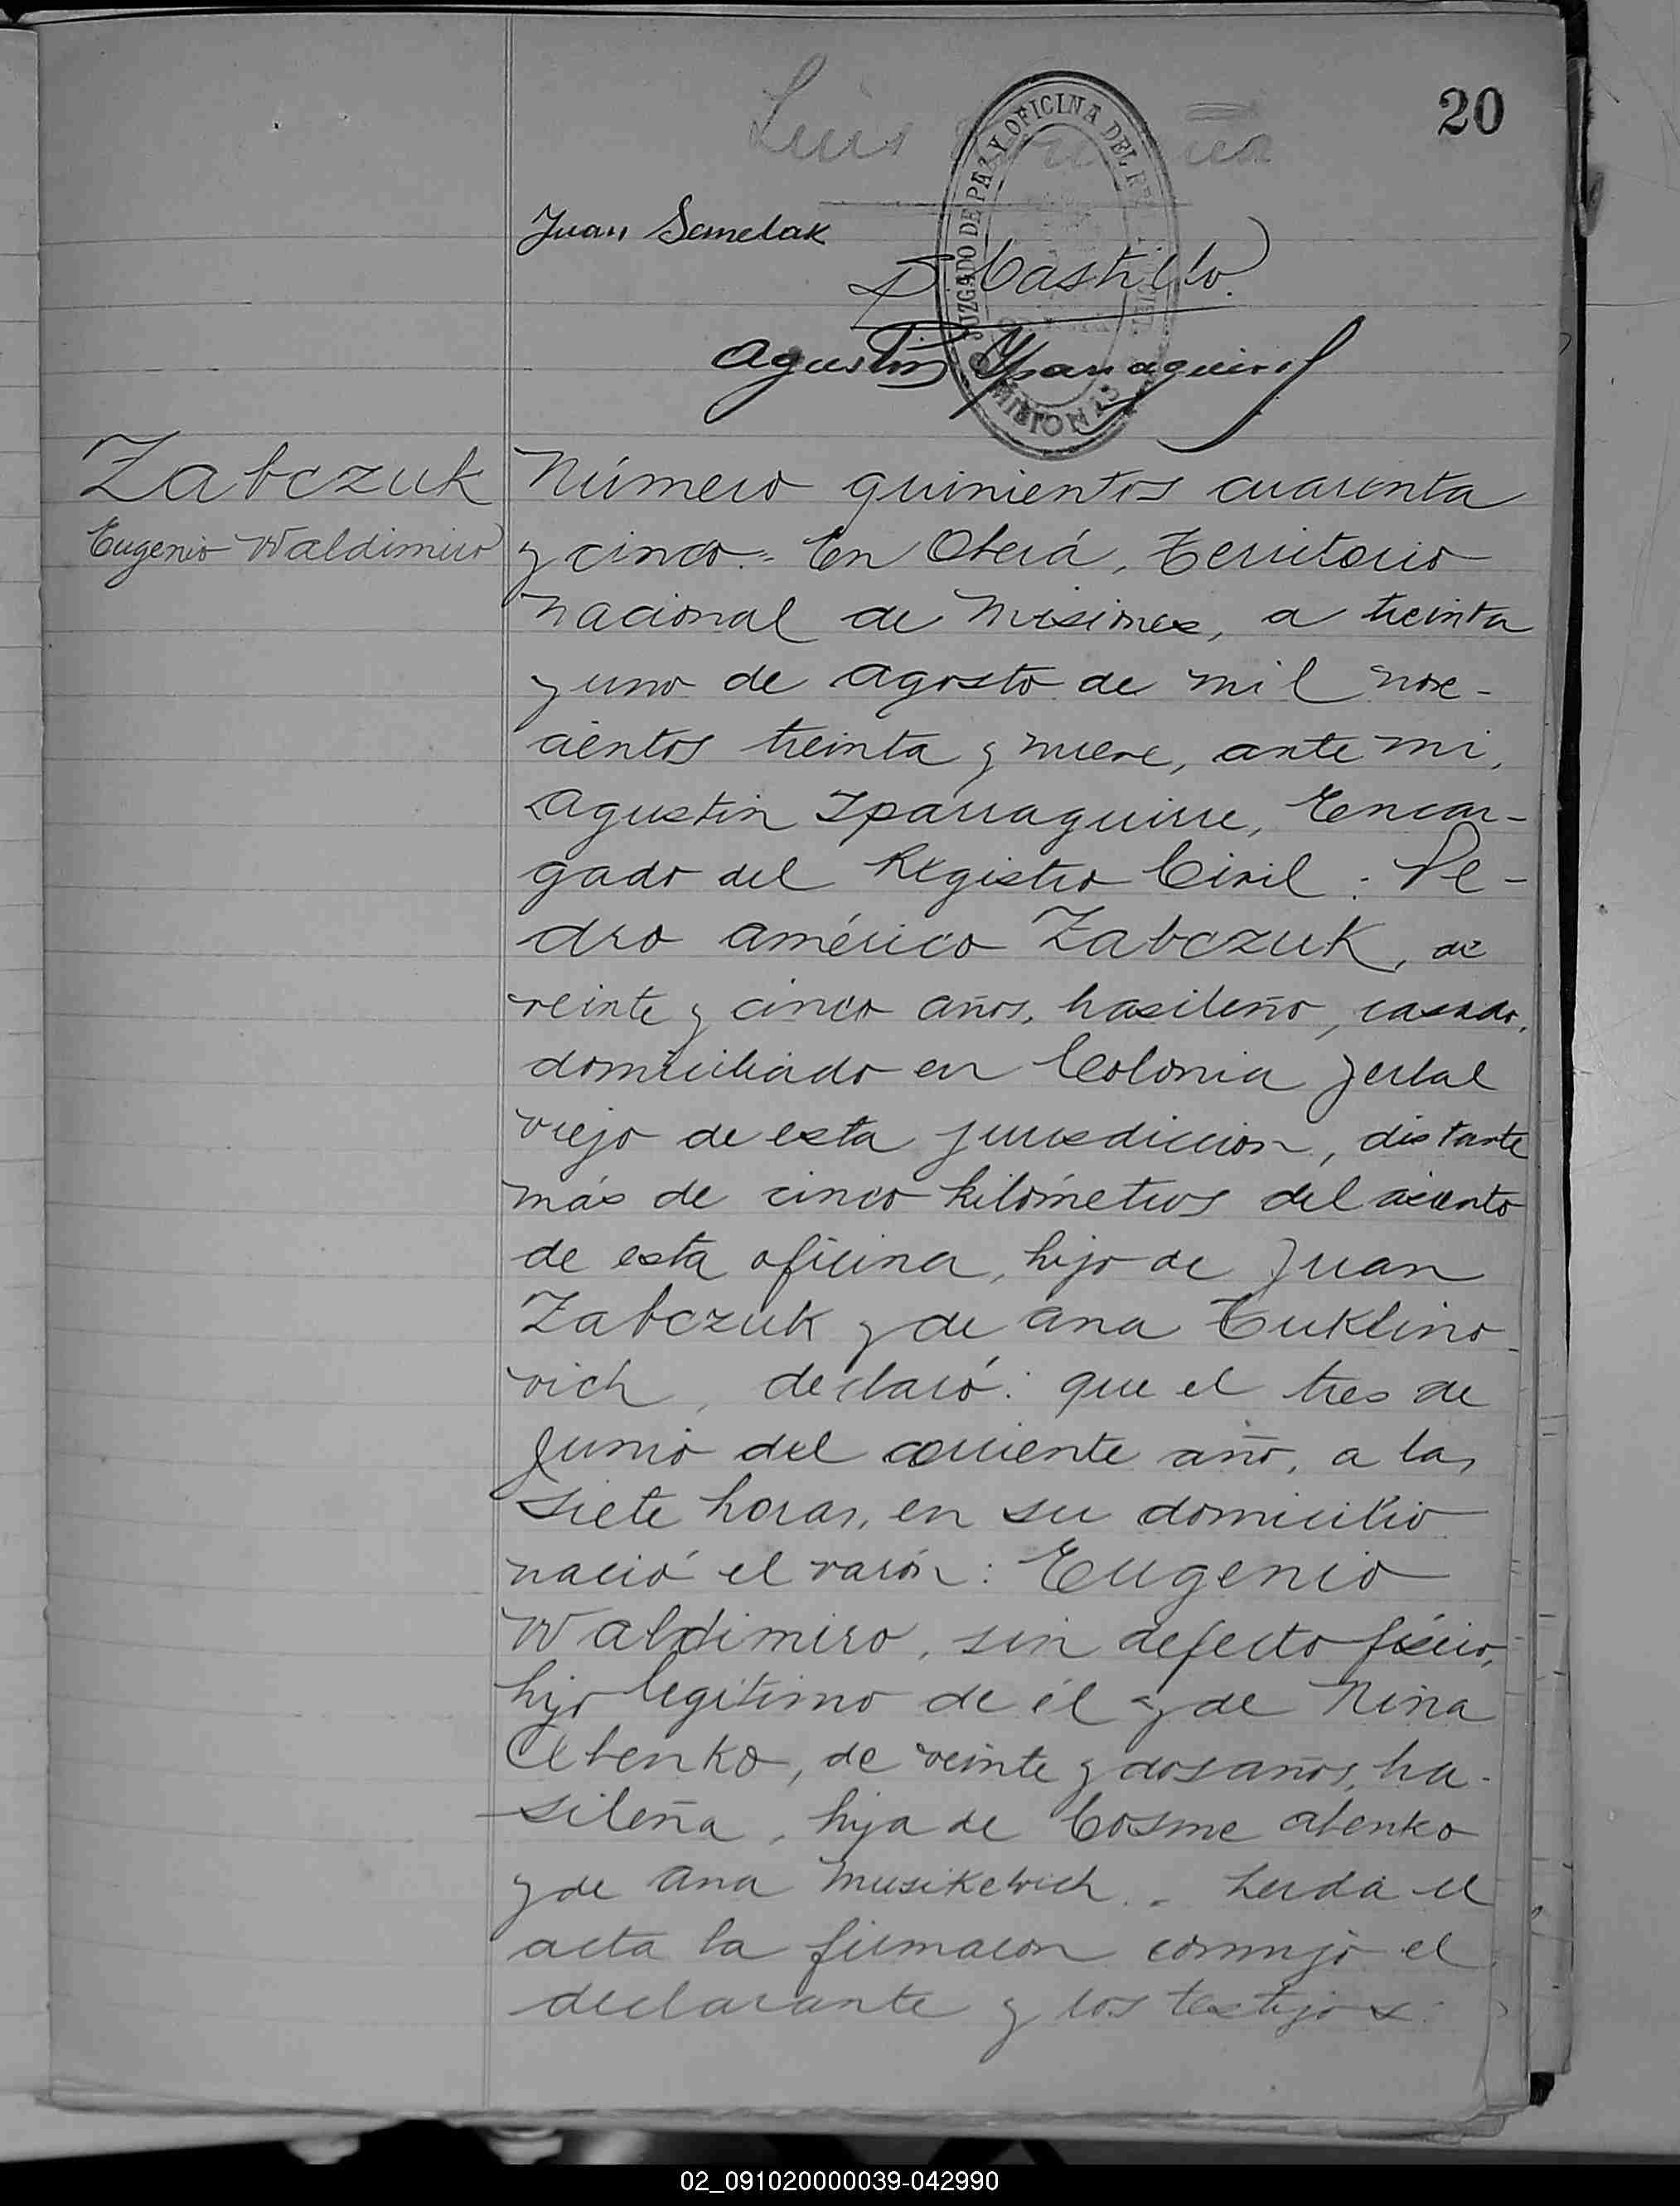 20
Luis
JUZGADO DE PAZ Y OFICINA DEL
MISIONES
Juan Semelak
Castillo
Agustín Yparraguirre
Zabczuk
Eugenio Waldimiro
Número quinientos cuarenta
y cinco.= En Oberá, Territorio
nacional de Misiones, a treinta
y uno de agosto de mil nove-
cientos treinta y nueve, ante mi,
Agustin Yparraguirre, Encar-
gado del Registro Civil: Pe-
dro américo Zabczuk, de
veinte y cinco años, brasileño, casado,
domiciliado en Colonia Yerbal
viejo de esta jurisdiccion, distante
más de cinco kilómetros del asiento
de esta oficina, hijo de Juan
Zabczuk y de Ana Tuklino-
vich, declaró: que el tres de
Junio del corriente año, a las
siete horas, en su domicilio
nació el varón: Eugenio
Waldimiro, sin defecto físico,
hijo legítimo de él y de Nina
Abenko, de veinte y dos años, bra-
sileña, hija de Cosme Abenko
y de Ana Musikewich. Leida el
acta la firmaron conmigo el
declarante y los testigos:
02_091020000039-042990